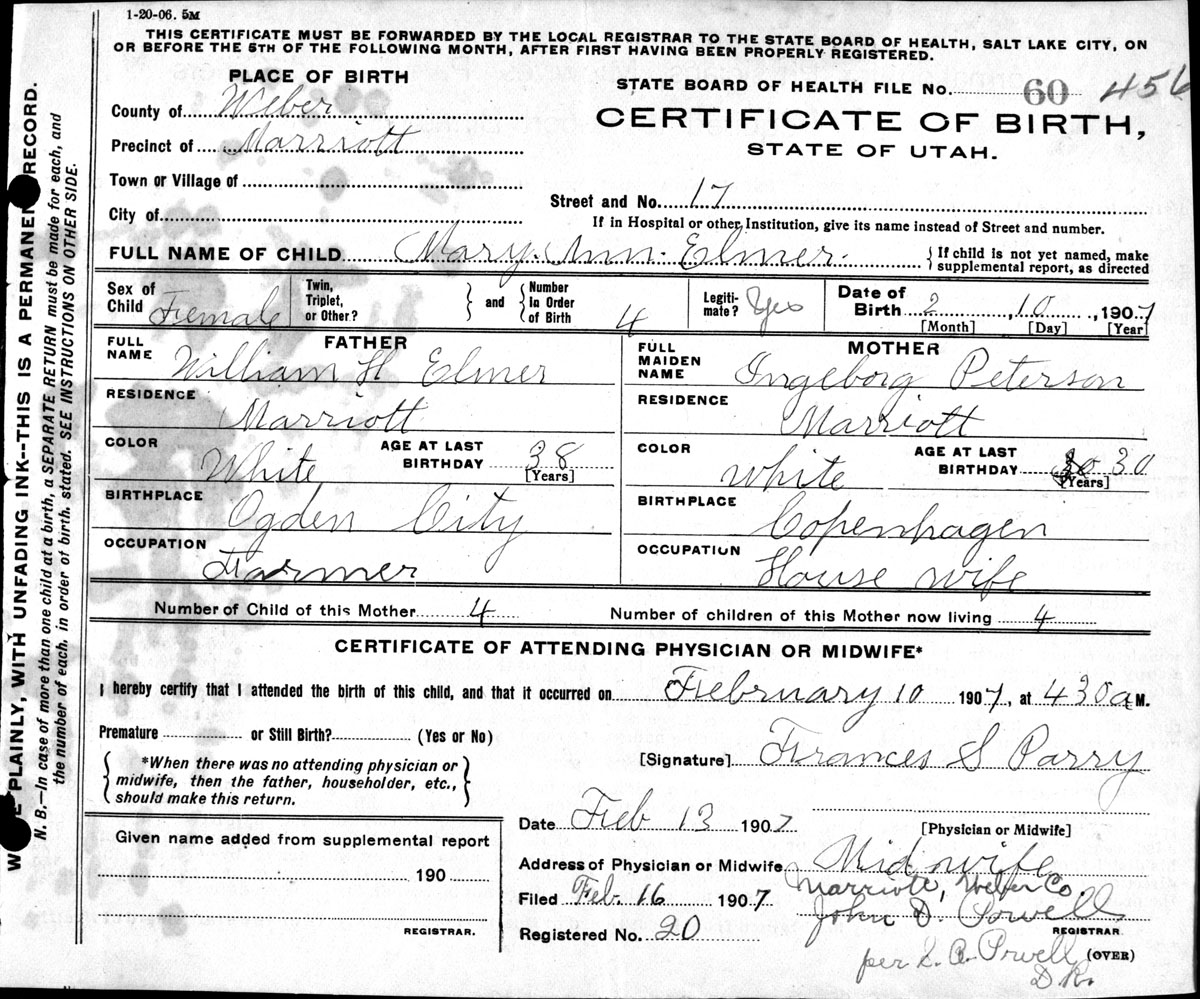 1-20-06. 5M
THIS CERTIFICATE MUST BE FORWARDED BY THE LOCAL REGISTRAR TO THE STATE BOARD OF HEALTH, SALT LAKE CITY, ON
OR BEFORE THE 5TH OF THE FOLLOWING MONTH, AFTER FIRST HAVING BEEN PROPERLY REGISTERED.
PLACE OF BIRTH
County of Weber
Precinct of Marriott
Town or Village of
City of
STATE BOARD OF HEALTH FILE No. 60 456
CERTIFICATE OF BIRTH,
STATE OF UTAH.
Street and No. 17
If in Hospital or other Institution, give its name instead of Street and number.
FULL NAME OF CHILD Mary Ann Elmer. {If child is not yet named, make
supplemental report, as directed
Sex of Child Female
Twin, Triplet, or Other? } and { Number In Order of Birth 4
Legiti-mate? Yes
Date of Birth 2 , 10 , 1907
[Month] [Day] [Year]
FATHER
FULL NAME William H Elmer
RESIDENCE Marriott
COLOR White AGE AT LAST BIRTHDAY 38 [Years]
BIRTHPLACE Ogden City
OCCUPATION Farmer
MOTHER
FULL MAIDEN NAME Ingeborg Peterson
RESIDENCE Marriott
COLOR White AGE AT LAST BIRTHDAY 30 [Years]
BIRTHPLACE Copenhagen
OCCUPATION House wife
Number of Child of this Mother 4 Number of children of this Mother now living 4
CERTIFICATE OF ATTENDING PHYSICIAN OR MIDWIFE*
I hereby certify that I attended the birth of this child, and that it occurred on February 10 1907, at 430 a M.
Premature or Still Birth? (Yes or No)
{ *When there was no attending physician or
midwife, then the father, householder, etc.,
should make this return. }
[Signature] Frances S Parry
[Physician or Midwife]
Date Feb 13 1907
Midwife
Address of Physician or Midwife Marriott, Weber Co.
Filed Feb. 16 1907 John D. Powell
REGISTRAR.
Registered No. 20
per S. A. Powell (OVER)
D.R.
Given name added from supplemental report
190
REGISTRAR.
PLAINLY, WITH UNFADING INK--THIS IS A PERMANEN RECORD.
N. B.—In case of more than one child at a birth, a SEPARATE RETURN must be made for each, and
the number of each, in order of birth, stated. SEE INSTRUCTIONS ON OTHER SIDE.